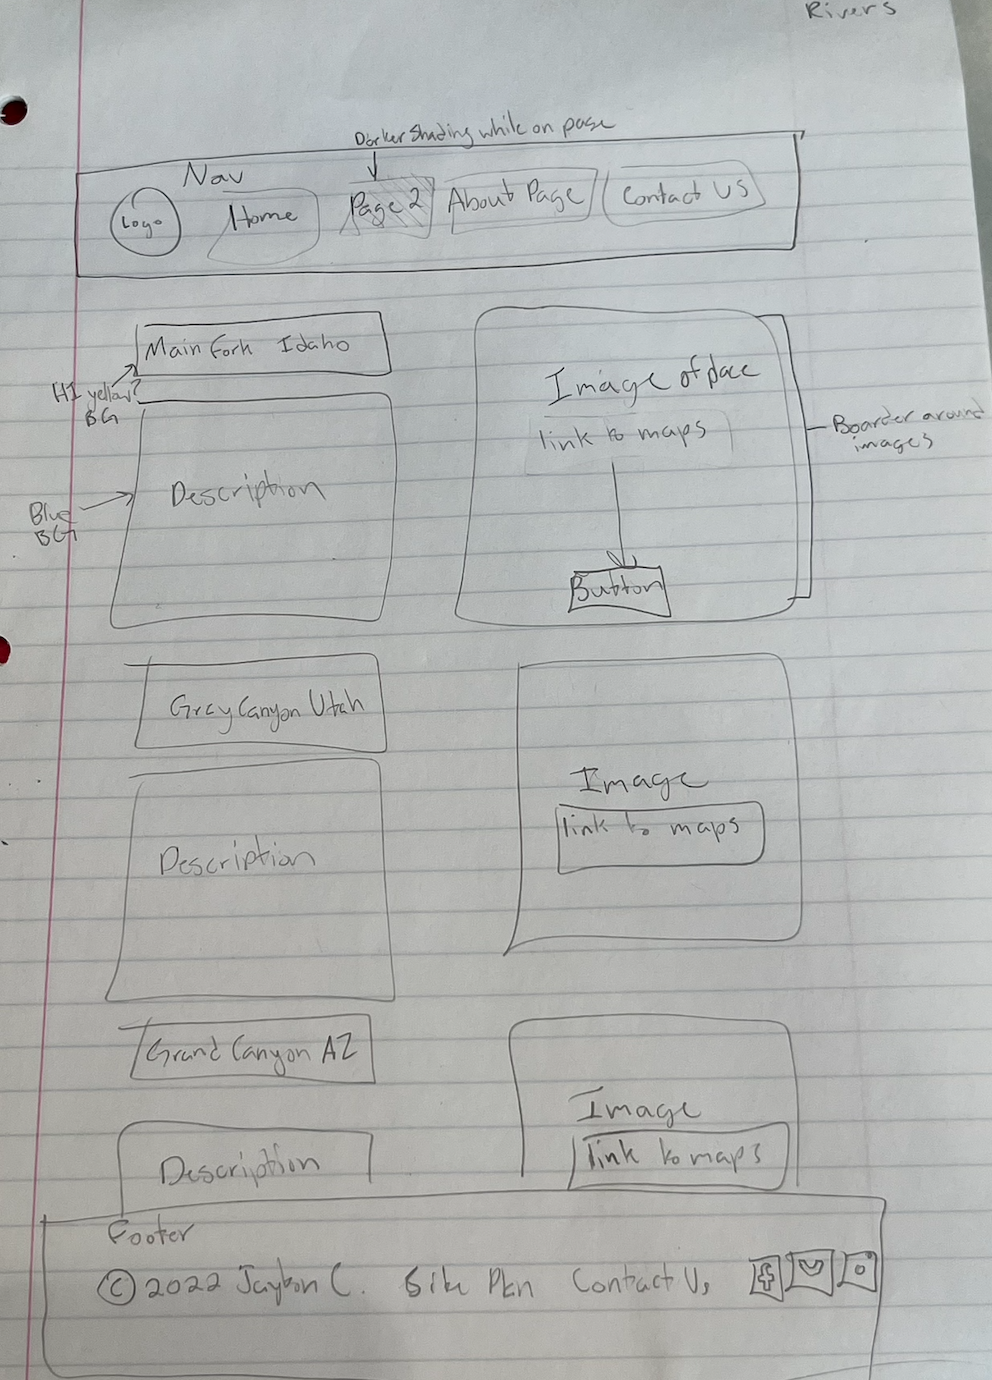 Rivers
Darker Shading while on page
Nav
Logo
Home
Page 2
About Page
Contact US
Main Fork Idaho
HI yellow?
BG
Description
Blue
BG
Image of place
link to maps
Button
Boarder around
images
Grey Canyon Utah
Description
Image
link to maps
Grand Canyon AZ
Description
Image
link to maps
Footer
© 2022 C. Site Plan Contact Us